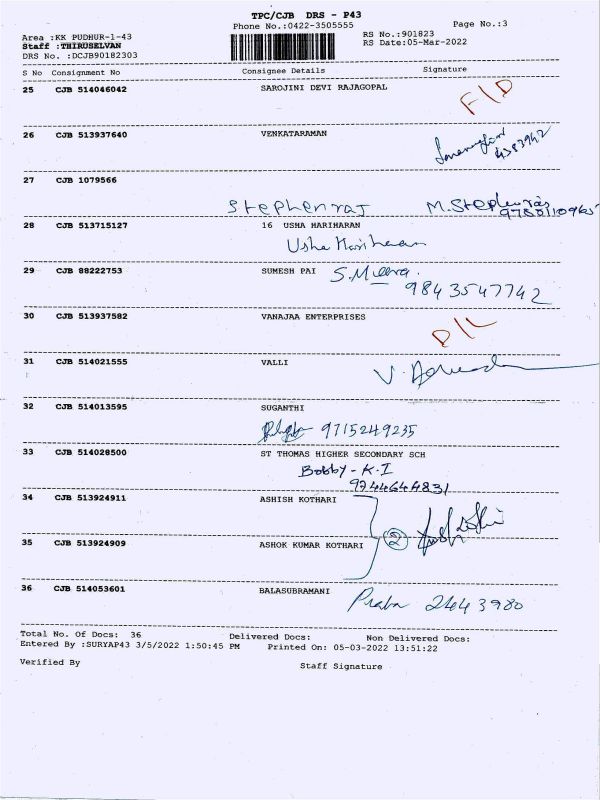 TPC/CJB DRS - P43
Phone No.:0422-3505555
Page No.:3
Area :KK PUDHUR-1-43
RS No.:901823
Staff :THIRUSELVAN
RS Date:05-Mar-2022
DRS No. :DCJB90182303
S No Consignment No Consignee Details Signature
25 CJB 514046042 SAROJINI DEVI RAJAGOPAL
26 CJB 513937640 VENKATARAMAN
4383942
27 CJB 1079566
Stephenraj M.Stephenraj
28 CJB 513715127 16 USHA HARIHARAN
Usha Hariharan
29 CJB 88222753 SUMESH PAI S.Meera.
9843547742
30 CJB 513937582 VANAJAA ENTERPRISES
D/L
31 CJB 514021555 VALLI
32 CJB 514013595 SUGANTHI
9715249235
33 CJB 514028500 ST THOMAS HIGHER SECONDARY SCH
Bobby-K.I
9744644831
34 CJB 513924911 ASHISH KOTHARI
2
35 CJB 513924909 ASHOK KUMAR KOTHARI
36 CJB 514053601 BALASUBRAMANI
Praba 2443980
Total No. Of Docs: 36 Delivered Docs: Non Delivered Docs:
Entered By :SURYAP43 3/5/2022 1:50:45 PM Printed On: 05-03-2022 13:51:22
Verified By
Staff Signature